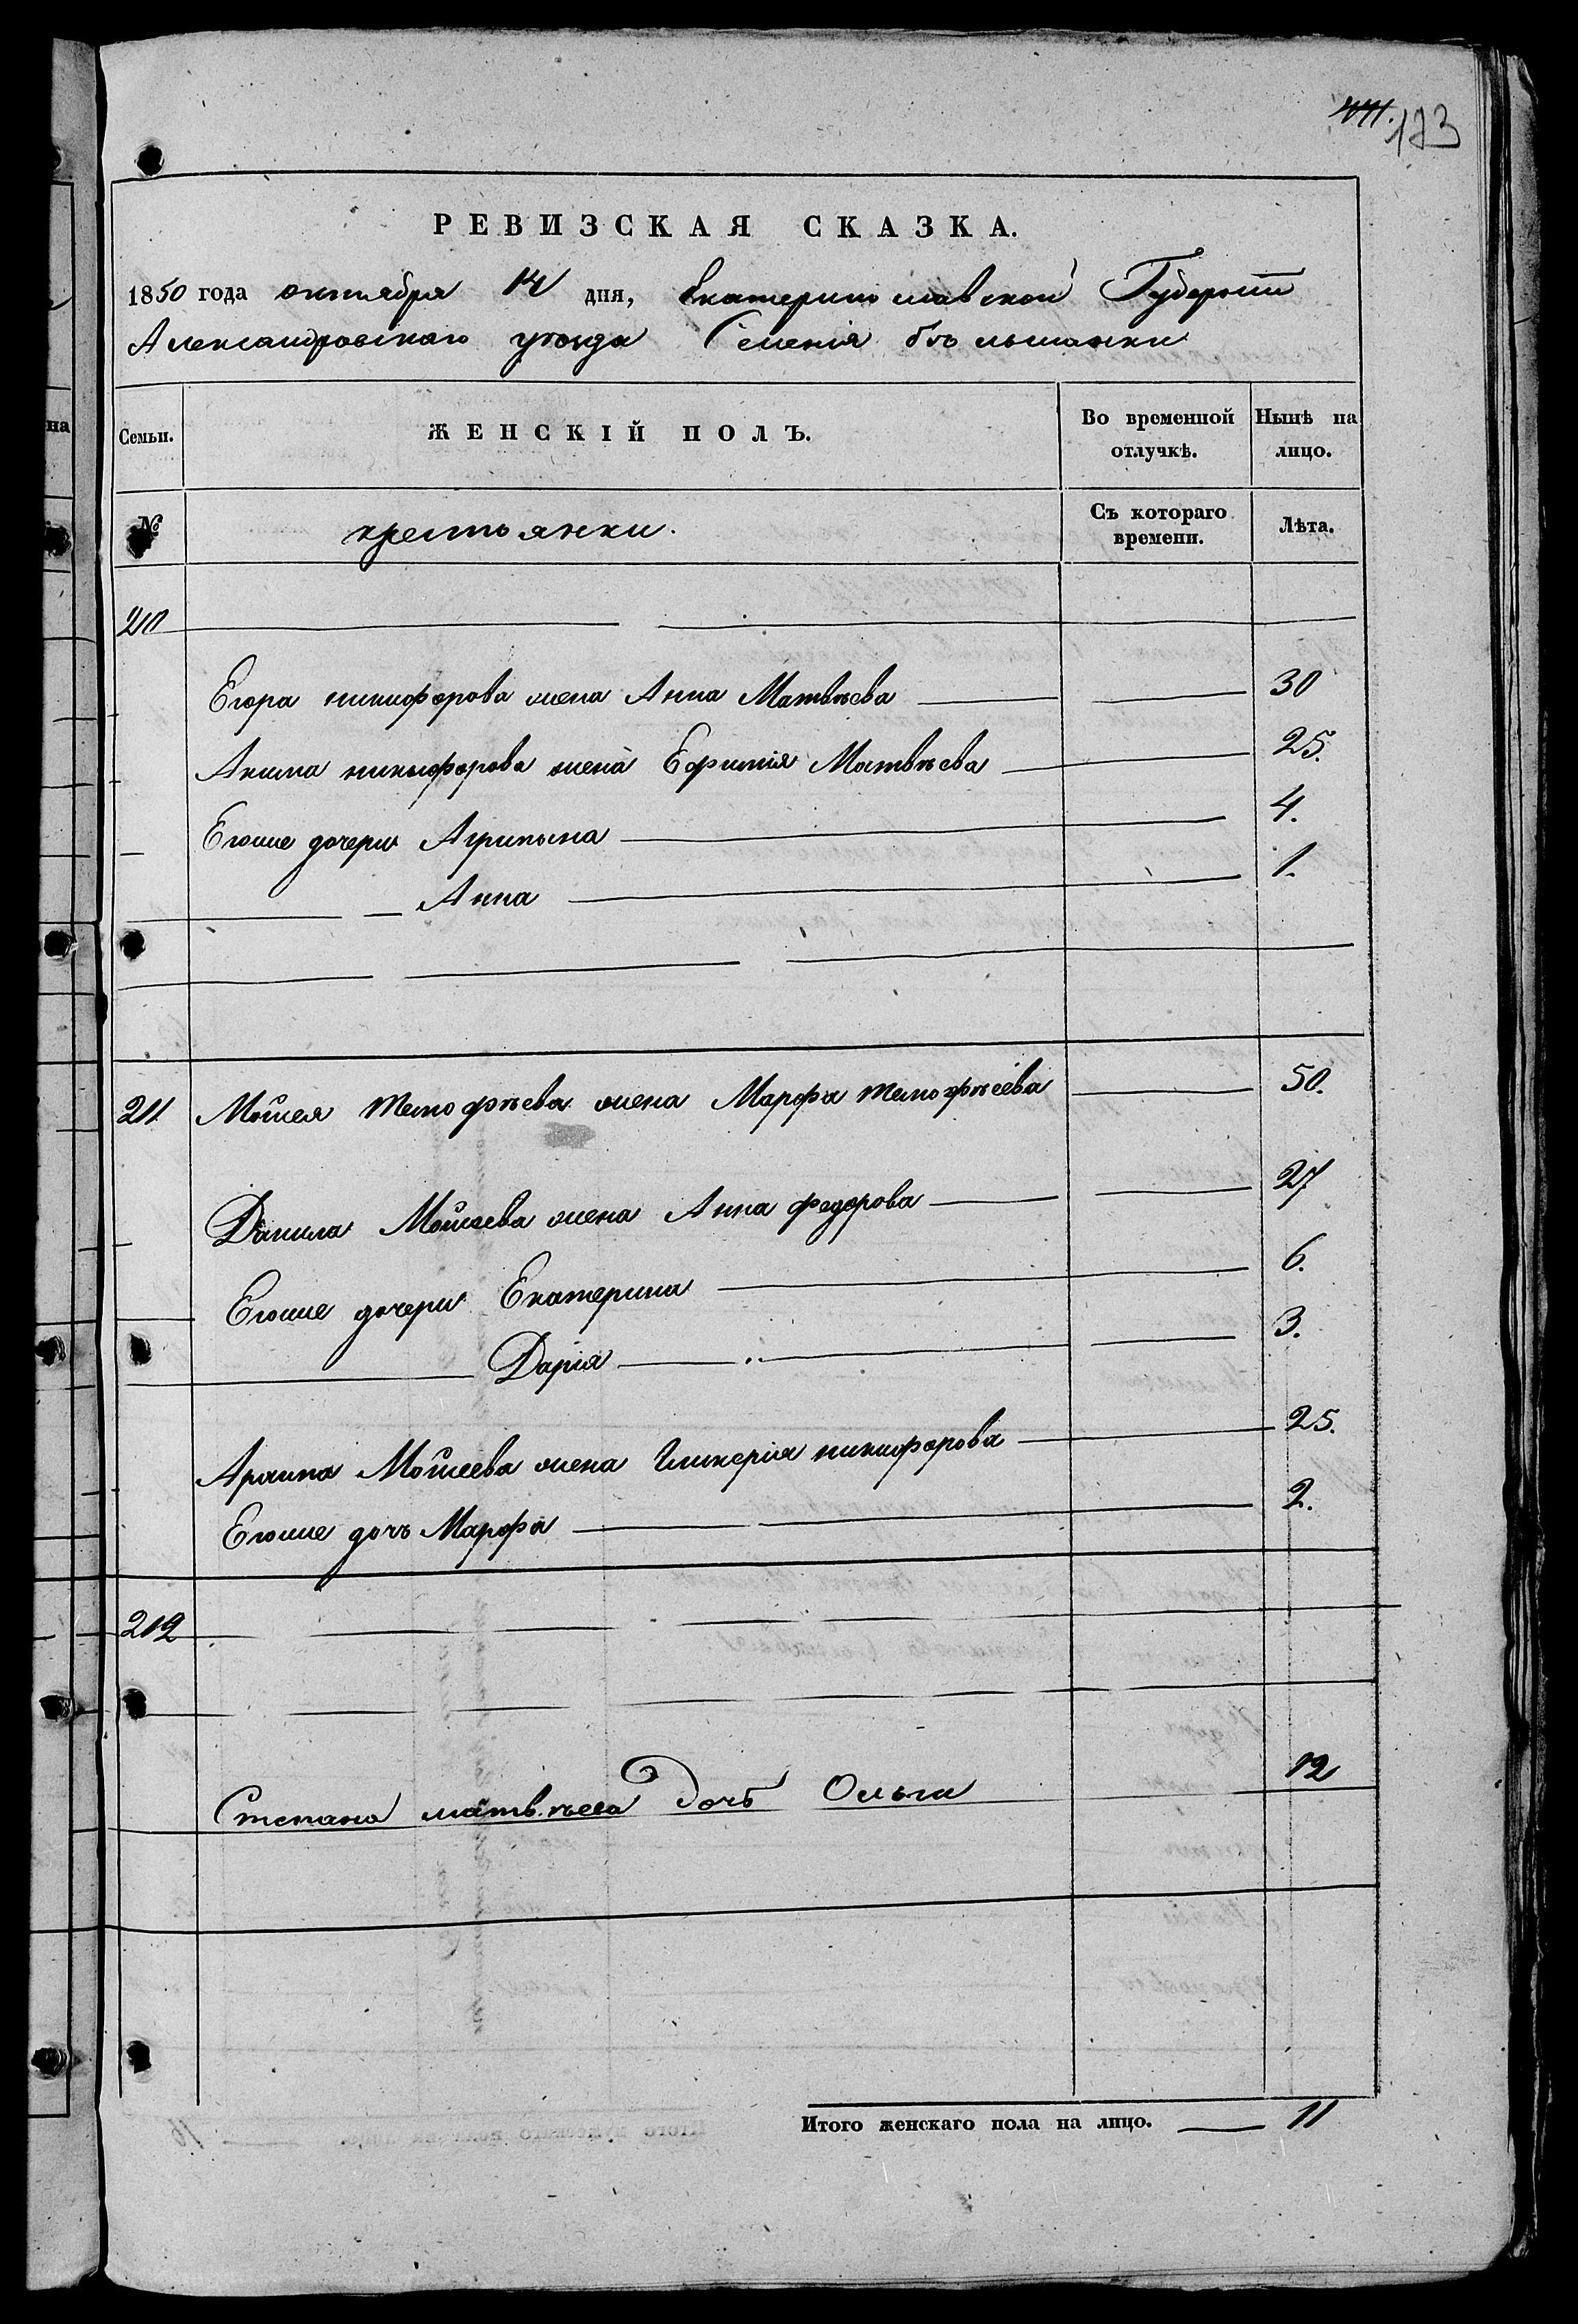 173
РЕВИЗСКАЯ СКАЗКА.
1850 года октября 14 дня, Екатеринославской Губернии
Александровскаго уѣзда Селенія Бѣльманки
Семьи.
ЖЕНСКІЙ ПОЛЪ.
Во временной отлучкѣ.
Нынѣ на лицо.
№
крестьянки.
Съ котораго времени.
Лѣта.
210
Егора никифорова жена Анна Матвѣева 30
Акима никифорова жена Ефимія Матвѣева 25.
Егоже дочери Агрипына 4.
Анна 1.
211 Мойсея Тимофѣева жена Марфа тимофѣева 50.
Данила Мойсеева жена Анна федорова 27
Егоже дочери Екатерина 6.
Дарія 3.
Архипа Мойсеева жена Гликерія никифорова 25.
Егоже дочь Марфа 2.
212
Степана матвѣева Дочь Ольга 12
Итого женскаго пола на лицо. 11